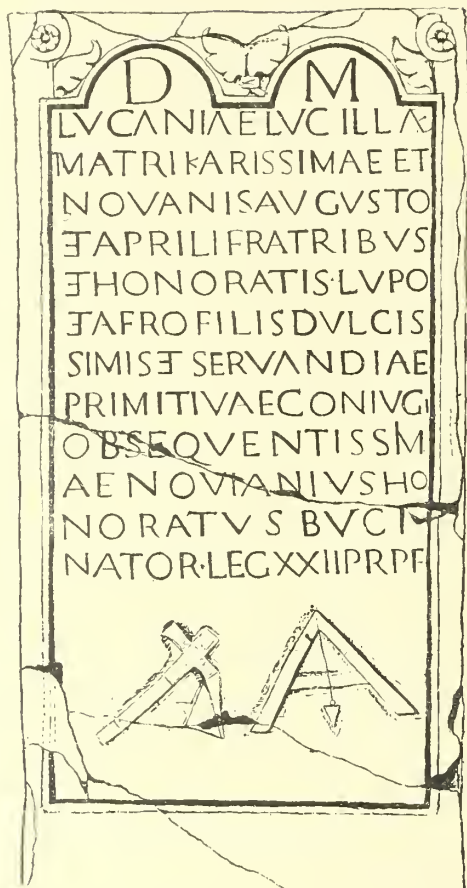 D M
LVCANIAE LVCILLAE
MATRI KARISSIMAE ET
NOVANIS AVGVSTO
ET APRILI FRATRIBVS
ET HONORATIS·LVPO
ET AFRO FILIS DVLCIS
SIMIS ET SERVANDIAE
PRIMITIVAE CONIVGI
OBSEQVENTISSM
AE NOVIANIVS HO
NORATVS BVCI
NATOR·LEG XXII PR P F